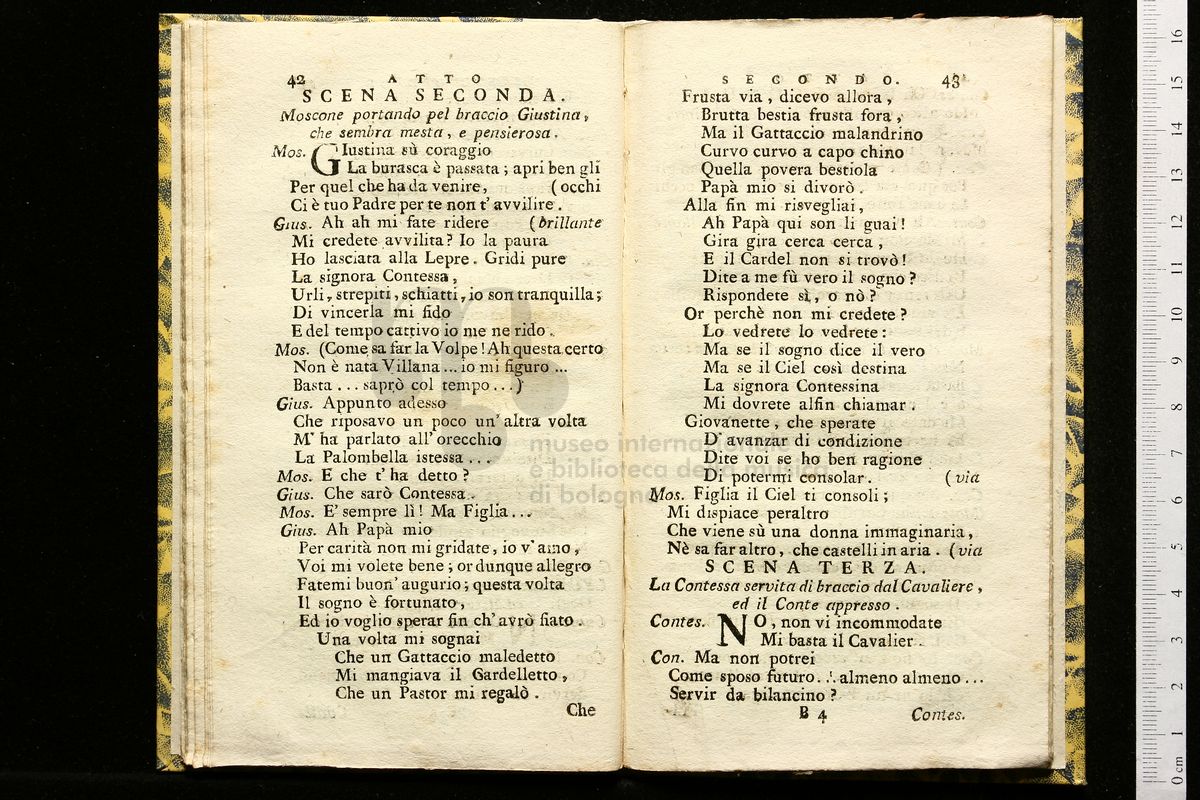 42 ATTO
SCENA SECONDA.
Moscone portando pel braccio Giustina,
che sembra mesta, e pensierosa.
Mos. GIustina sù coraggio
La burasca è passata; apri ben gli
Per quel che ha da venire, (occhi
Ci è tuo Padre per te non t'avvilire.
Gius. Ah ah mi fate ridere (brillante
Mi credete avvilita? Io la paura
Ho lasciata alla Lepre. Gridi pure
La signora Contessa,
Urli, strepiti, schiatti, io son tranquilla;
Di vincerla mi fido
E del tempo cattivo io me ne rido.
Mos. (Come sa far la Volpe! Ah questa certo
Non è nata Villana... io mi figuro...
Basta... saprò col tempo...)
Gius. Appunto adesso
Che riposavo un poco un'altra volta
M'ha parlato all'orecchio
La Palombella istessa...
Mos. E che t'ha detto?
Gius. Che sarò Contessa.
Mos. E' sempre lì! Ma Figlia...
Gius. Ah Papà mio
Per carità non mi gridate, io v'amo,
Voi mi volete bene; or dunque allegro
Fatemi buon'augurio; questa volta
Il sogno è fortunato,
Ed io voglio sperar fin ch'avrò fiato.
Una volta mi sognai
Che un Gattaccio maledetto
Mi mangiava il Gardelletto,
Che un Pastor mi regalò.
Che
SECONDO. 43
Frusta via, dicevo allora,
Brutta bestia frusta fora,
Ma il Gattaccio malandrino
Curvo curvo a capo chino
Quella povera bestiola
Papà mio si divorò.
Alla fin mi risvegliai,
Ah Papà qui son li guai!
Gira gira cerca cerca,
E il Cardel non si trovò!
Dite a me fù vero il sogno?
Rispondete sì, o nò?
Or perchè non mi credete?
Lo vedrete lo vedrete:
Ma se il sogno dice il vero
Ma se il Ciel così destina
La signora Contessina
Mi dovrete alfin chiamar.
Giovanette, che sperate
D'avanzar di condizione
Dite voi se ho ben ragione
Di potermi consolar. (via
Mos. Figlia il Ciel ti consoli;
Mi dispiace peraltro
Che viene sù una donna immaginaria,
Nè sa far altro, che castelli in aria. (via
SCENA TERZA.
La Contessa servita di braccio dal Cavaliere,
ed il Conte appresso.
Contes. NO, non vi incommodate
Mi basta il Cavalier.
Con. Ma non potrei
Come sposo futuro... almeno almeno...
Servir da bilancino?
B 4 Contes.
museo internazionale
e biblioteca della musica
di bologna
0 cm 1 2 3 4 5 6 7 8 9 10 11 12 13 14 15 16